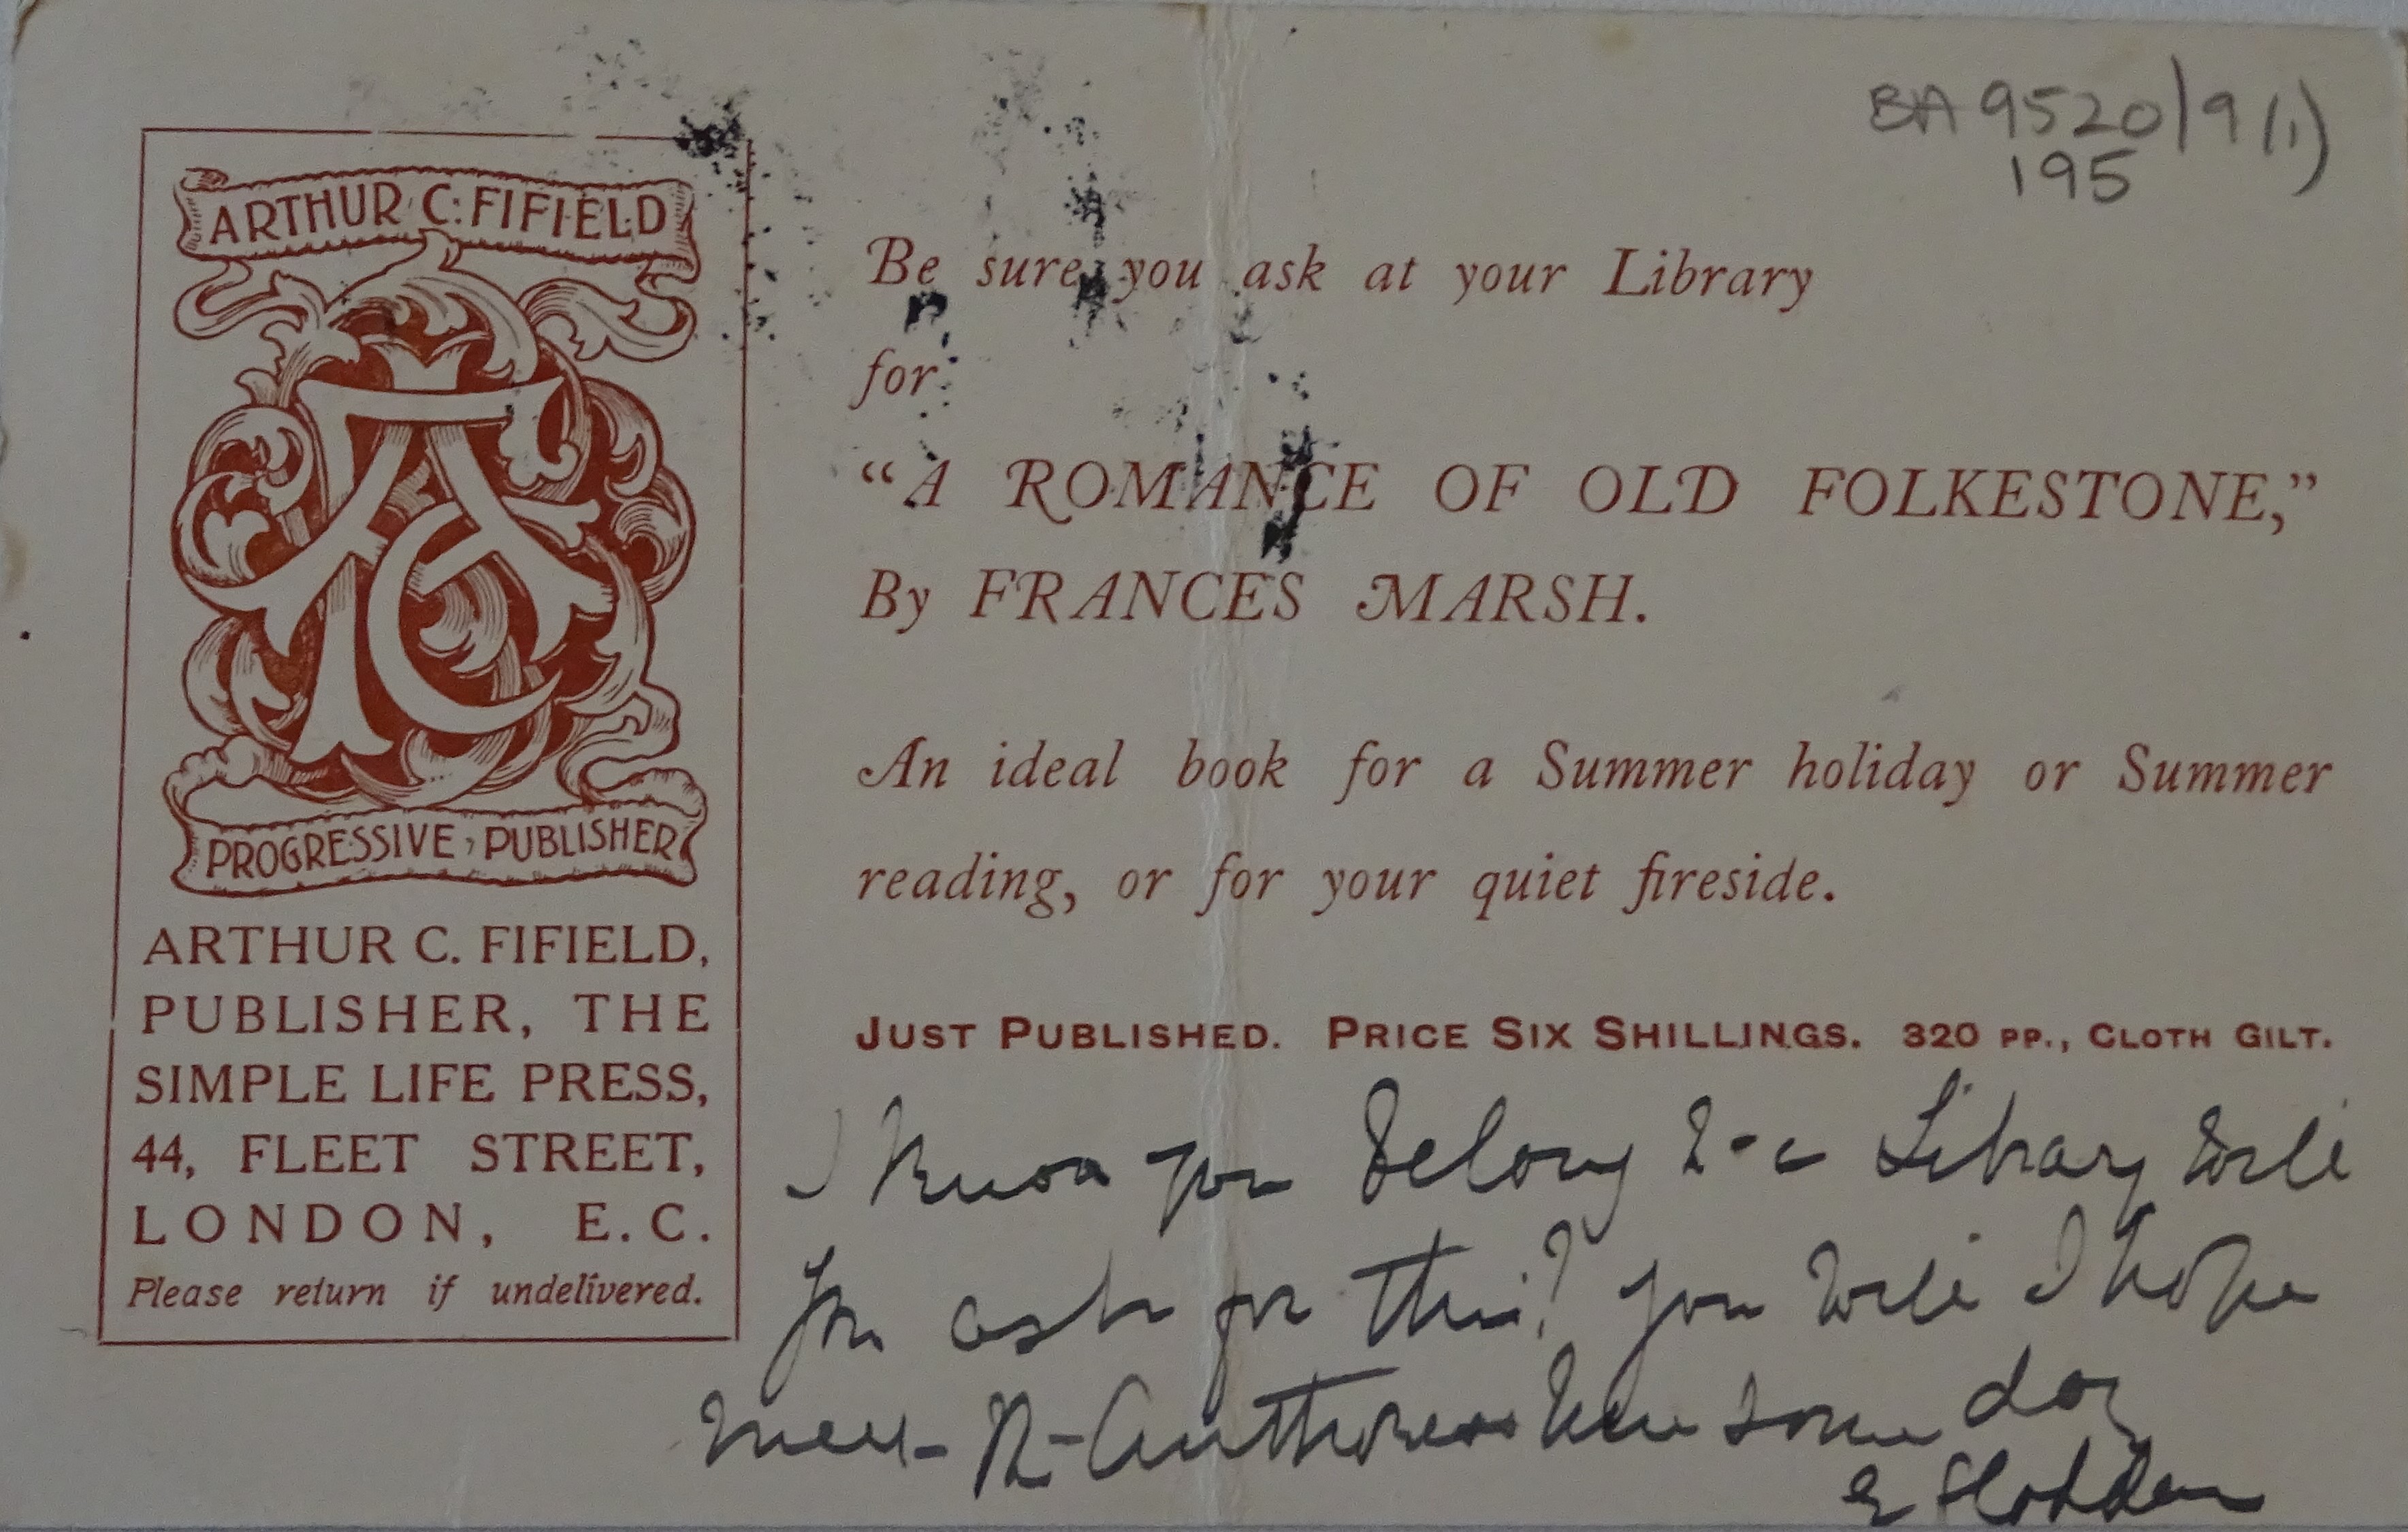 BA 9520/9(1)
195
ARTHUR C. FIFIELD
PROGRESSIVE PUBLISHER
ARTHUR C. FIFIELD,
PUBLISHER, THE
SIMPLE LIFE PRESS,
44, FLEET STREET,
LONDON, E.C.
Please return if undelivered.
Be sure you ask at your Library
for
“A ROMANCE OF OLD FOLKESTONE,”
By FRANCES MARSH.
An ideal book for a Summer holiday or Summer
reading, or for your quiet fireside.
JUST PUBLISHED. PRICE SIX SHILLINGS. 320 PP., CLOTH GILT.
I know you belong to a Library will
you ask for this? you will I hope
meet the Authoress here some day
E